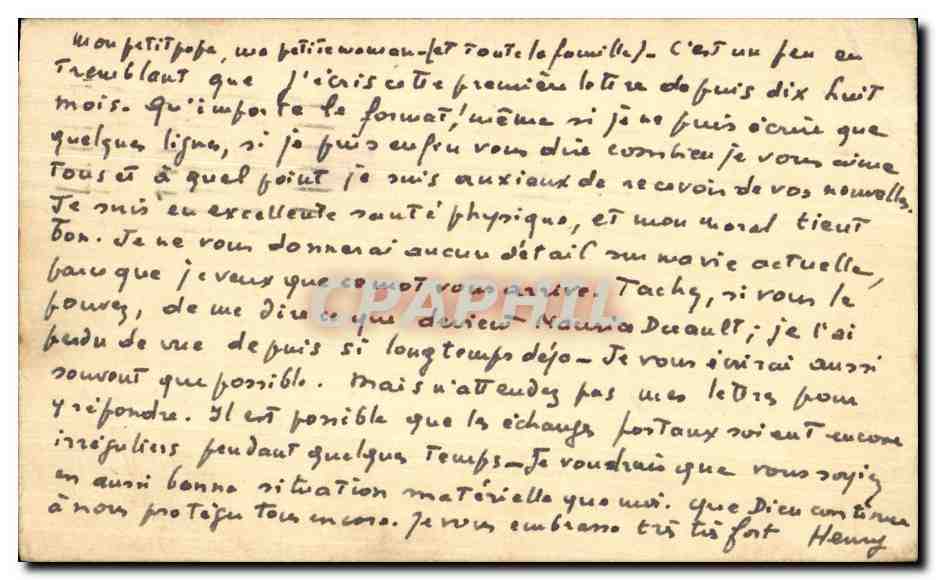 Mon petit papa, ma petite maman - (et toute la famille) - C'est un peu en
tremblant que j'écris cette première lettre depuis dix huit
mois. Qu'importe le format, même si je ne puis écrire que
quelques lignes, si je puis enfin vous dire combien je vous aime
tous et à quel point je suis anxieux de recevoir de vos nouvelles.
Je suis en excellente santé physique, et mon moral tient
bon. Je ne vous donnerai aucun détail sur ma vie actuelle,
parce que je veux que ce mot vous arrive. Tachez, si vous le
pouvez, de me dire ce que devient Duault; je l'ai
perdu de vue depuis si longtemps déjà - Je vous écrirai aussi
souvent que possible. Mais n'attendez pas mes lettres pour
y répondre. Il est possible que les échanges postaux soient encore
irréguliers pendant quelques temps - Je voudrais que vous soyiez
en aussi bonne situation matérielle que moi. Que Dieu continue
à nous protéger tous encore. Je vous embrasse très très fort Henry
CPAPHIL